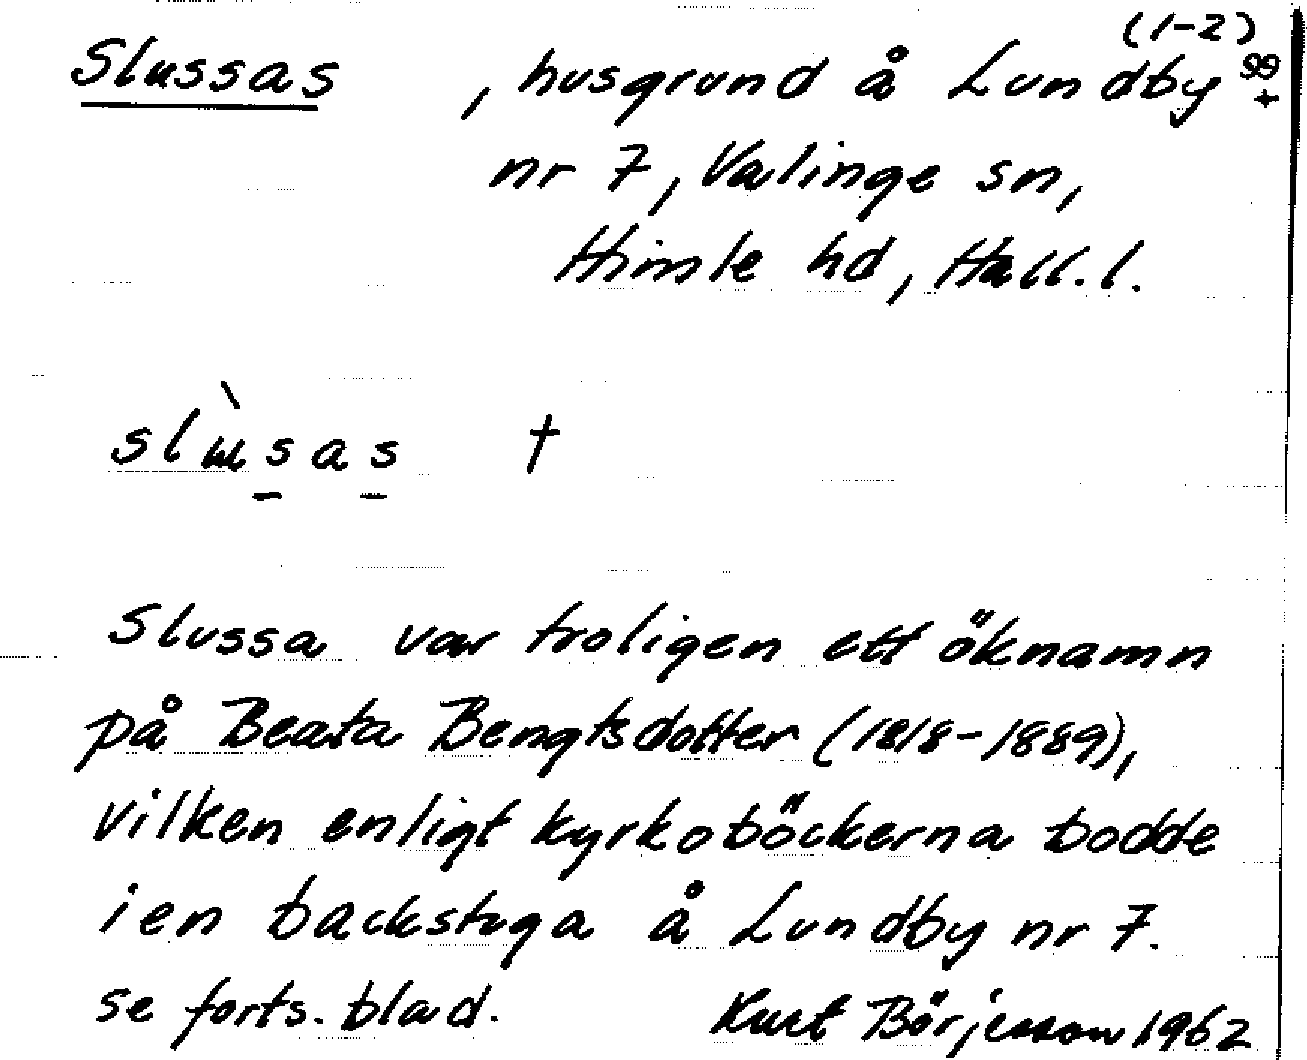 (1-2)
Slussas , husgrund å Lundby 99 +
nr 7, Valinge sn,
Himle hd, Hall. l.
slùsas †
Slussa var troligen ett öknamn
på Beata Bengtsdotter (1818-1889),
vilken enligt kyrkoböckerna bodde
i en backstuga å Lundby nr 7.
se forts. blad. Kurt Börjesson 1962